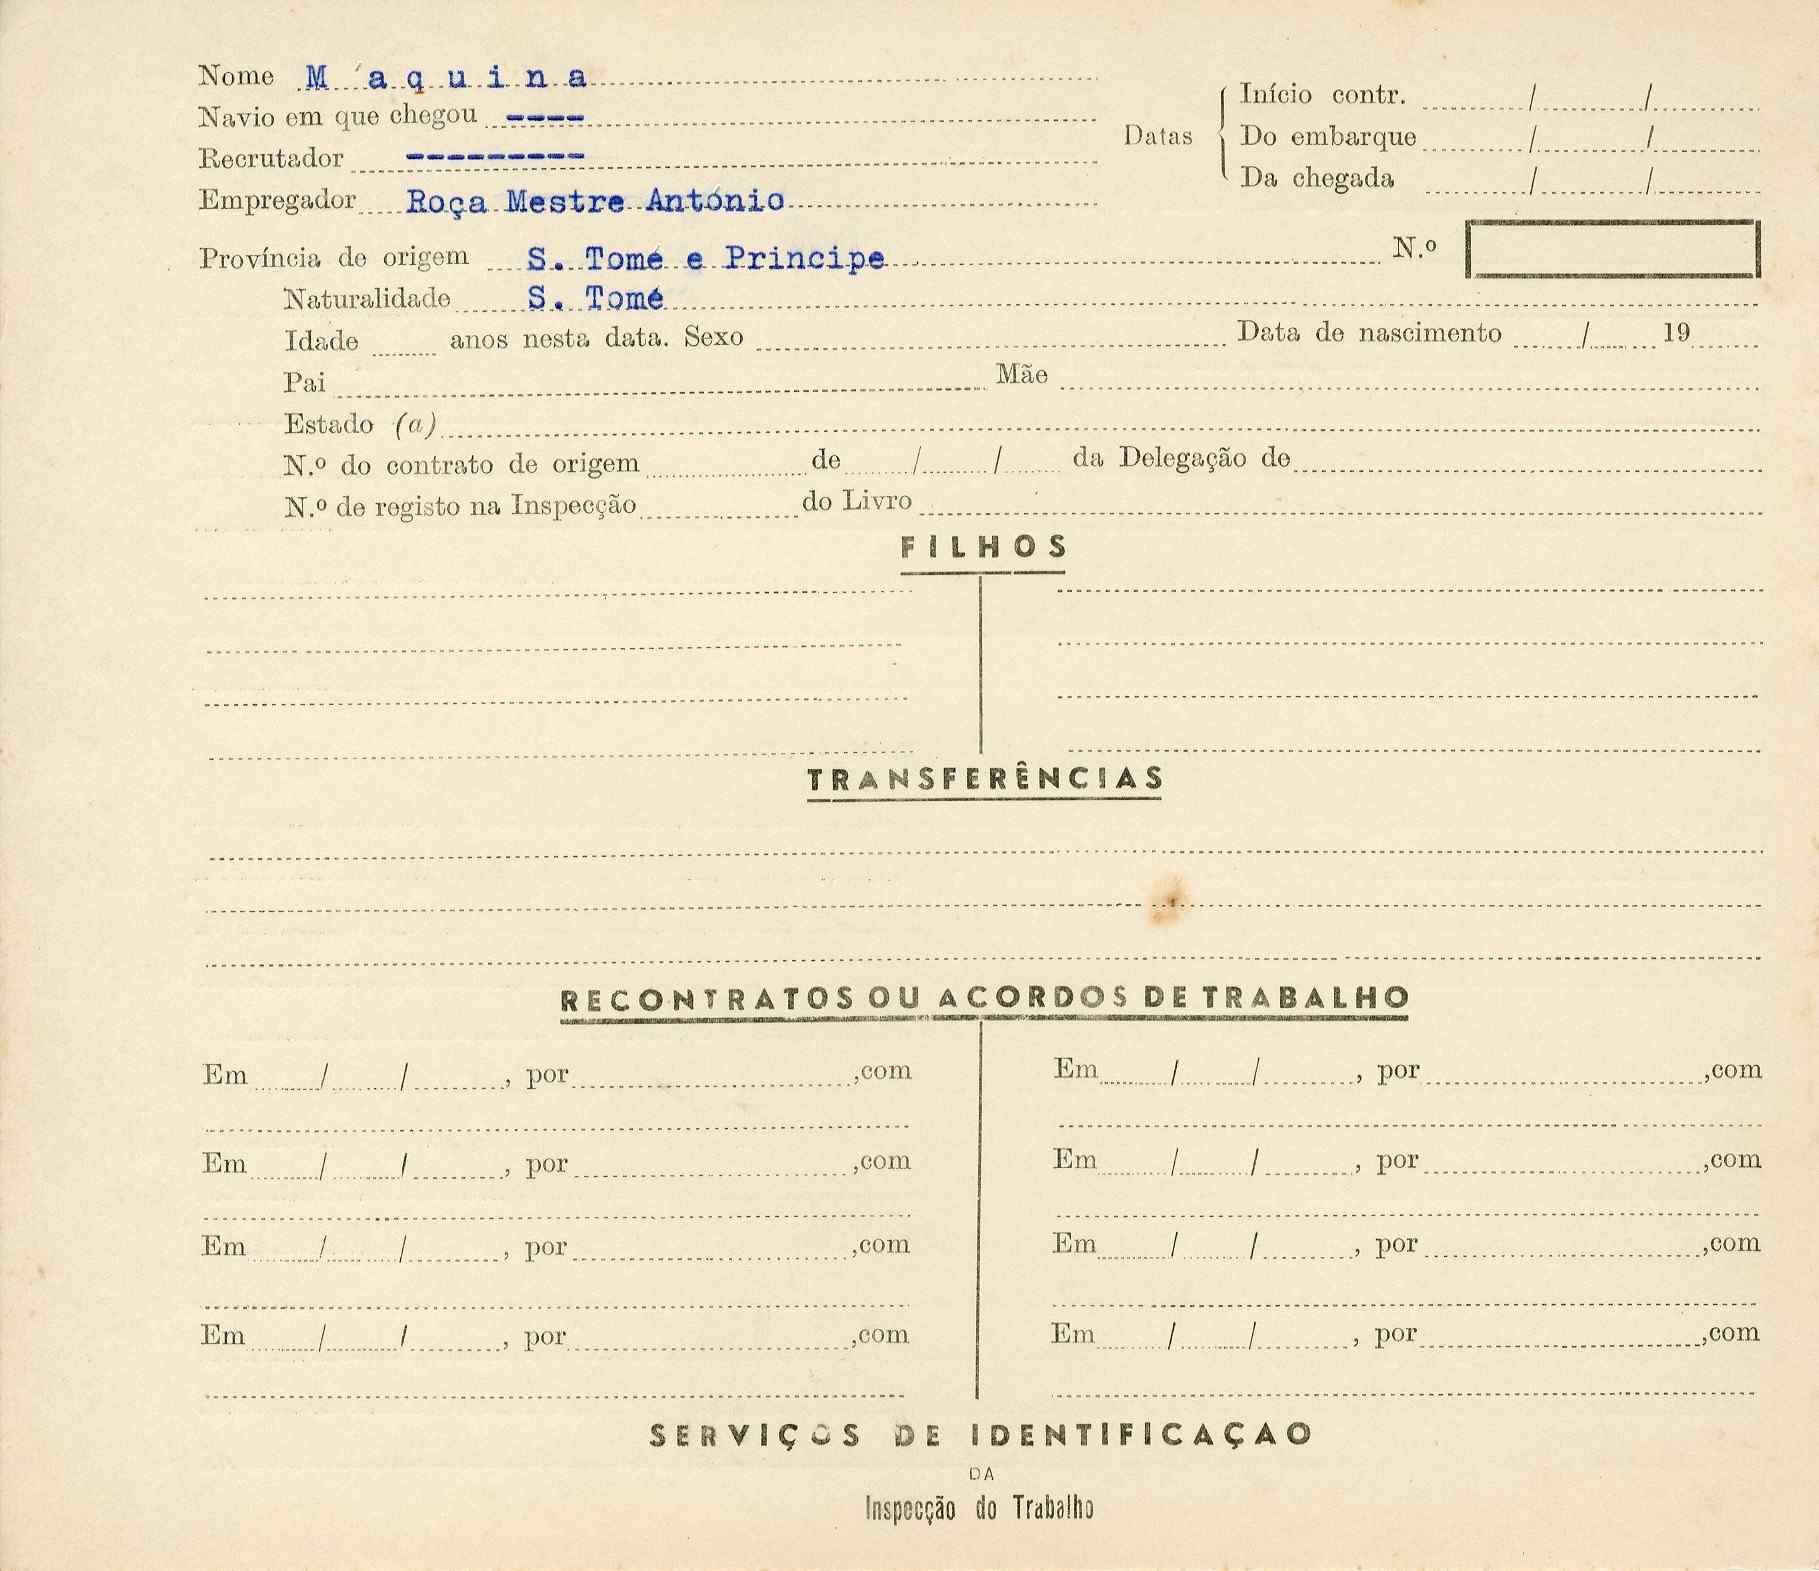 Nome M ´a q u i n a
Navio em que chegou ----
Recrutador ---------
Empregador Roça Mestre António
Datas
Início contr. / /
Do embarque / /
Da chegada / /
Província de origem S. Tomé e Principe N.º
Naturalidade S. Tomé
Idade anos nesta data. Sexo Data de nascimento / 19
Pai Mãe
Estado (a)
N.º do contrato de origem de / / da Delegação de
N.º de registo na Inspecção do Livro
FILHOS
TRANSFERÊNCIAS
RECONTRATOS OU ACORDOS DE TRABALHO
Em / / , por ,com
Em / / , por ,com
Em / / , por ,com
Em / / , por ,com
Em / / , por ,com
Em / / , por ,com
Em / / , por ,com
Em / / , por ,com
SERVIÇOS DE IDENTIFICAÇAO
DA
Inspecção do Trabalho